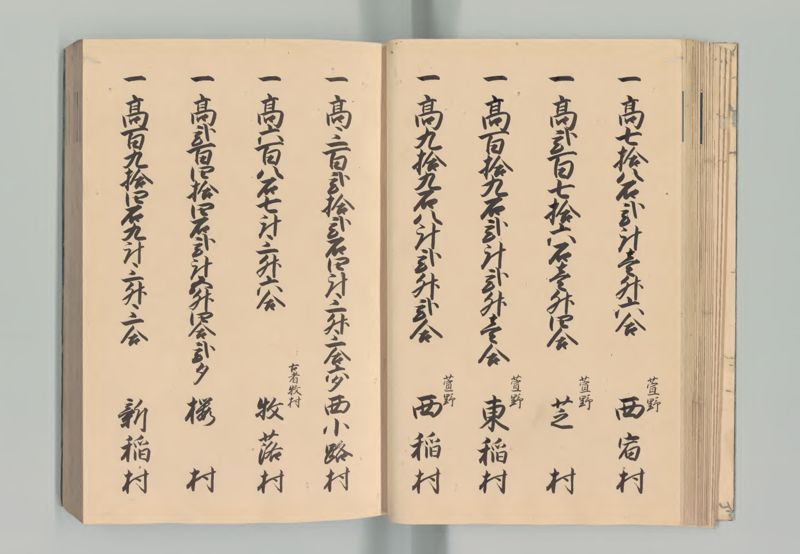 一 高七拾八石弐斗壱升六合 萱野 西宿村
一 高弐百七拾六石壱升四合 萱野 芝村
一 高百拾九石弐斗弐升壱合 萱野 東稲村
一 高九拾九石八斗弐升弐合 萱野 西稲村
一 高三百弐拾弐石四斗三升三合 西小路村
一 高六百八石七斗三升六合 古者牧村 牧落村
一 高弐百四拾四石弐斗四合弐夕 桜村
一 高百九拾四石九斗三升三合 新稲村